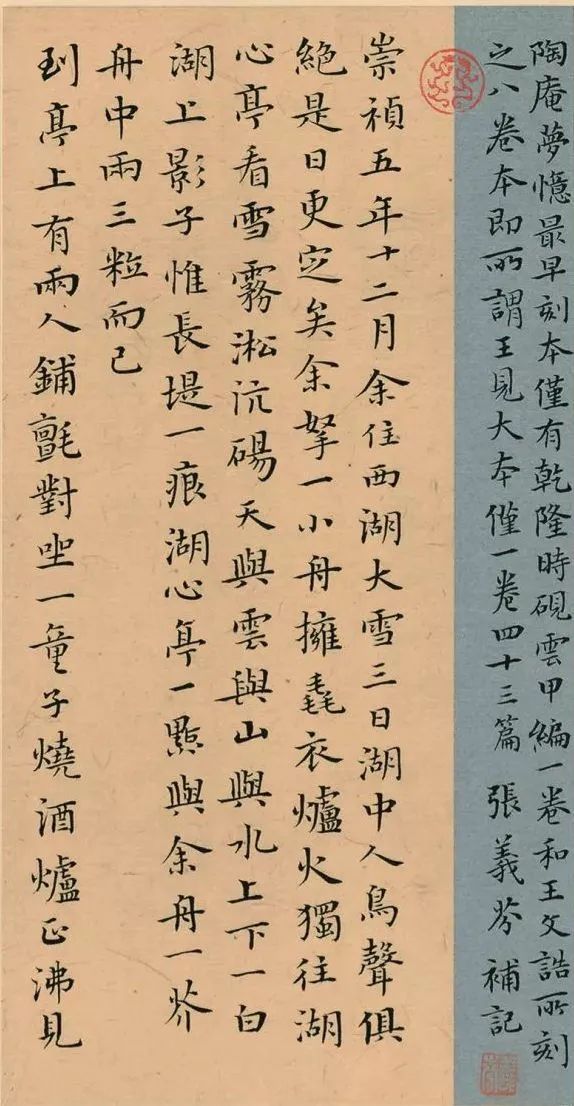 陶庵夢憶最早刻本僅有乾隆時硯雲甲編一卷和王文誥所刻
之八卷本即所謂王見大本僅一卷四十三篇 張義芬 補記
崇禎五年十二月余住西湖大雪三日湖中人鳥聲俱
絕是日更定矣余拏一小舟擁毳衣爐火獨往湖
心亭看雪霧淞沆碭天與雲與山與水上下一白
湖上影子惟長堤一痕湖心亭一點與余舟一芥
舟中兩三粒而已
到亭上有兩人鋪氈對坐一童子燒酒爐正沸見